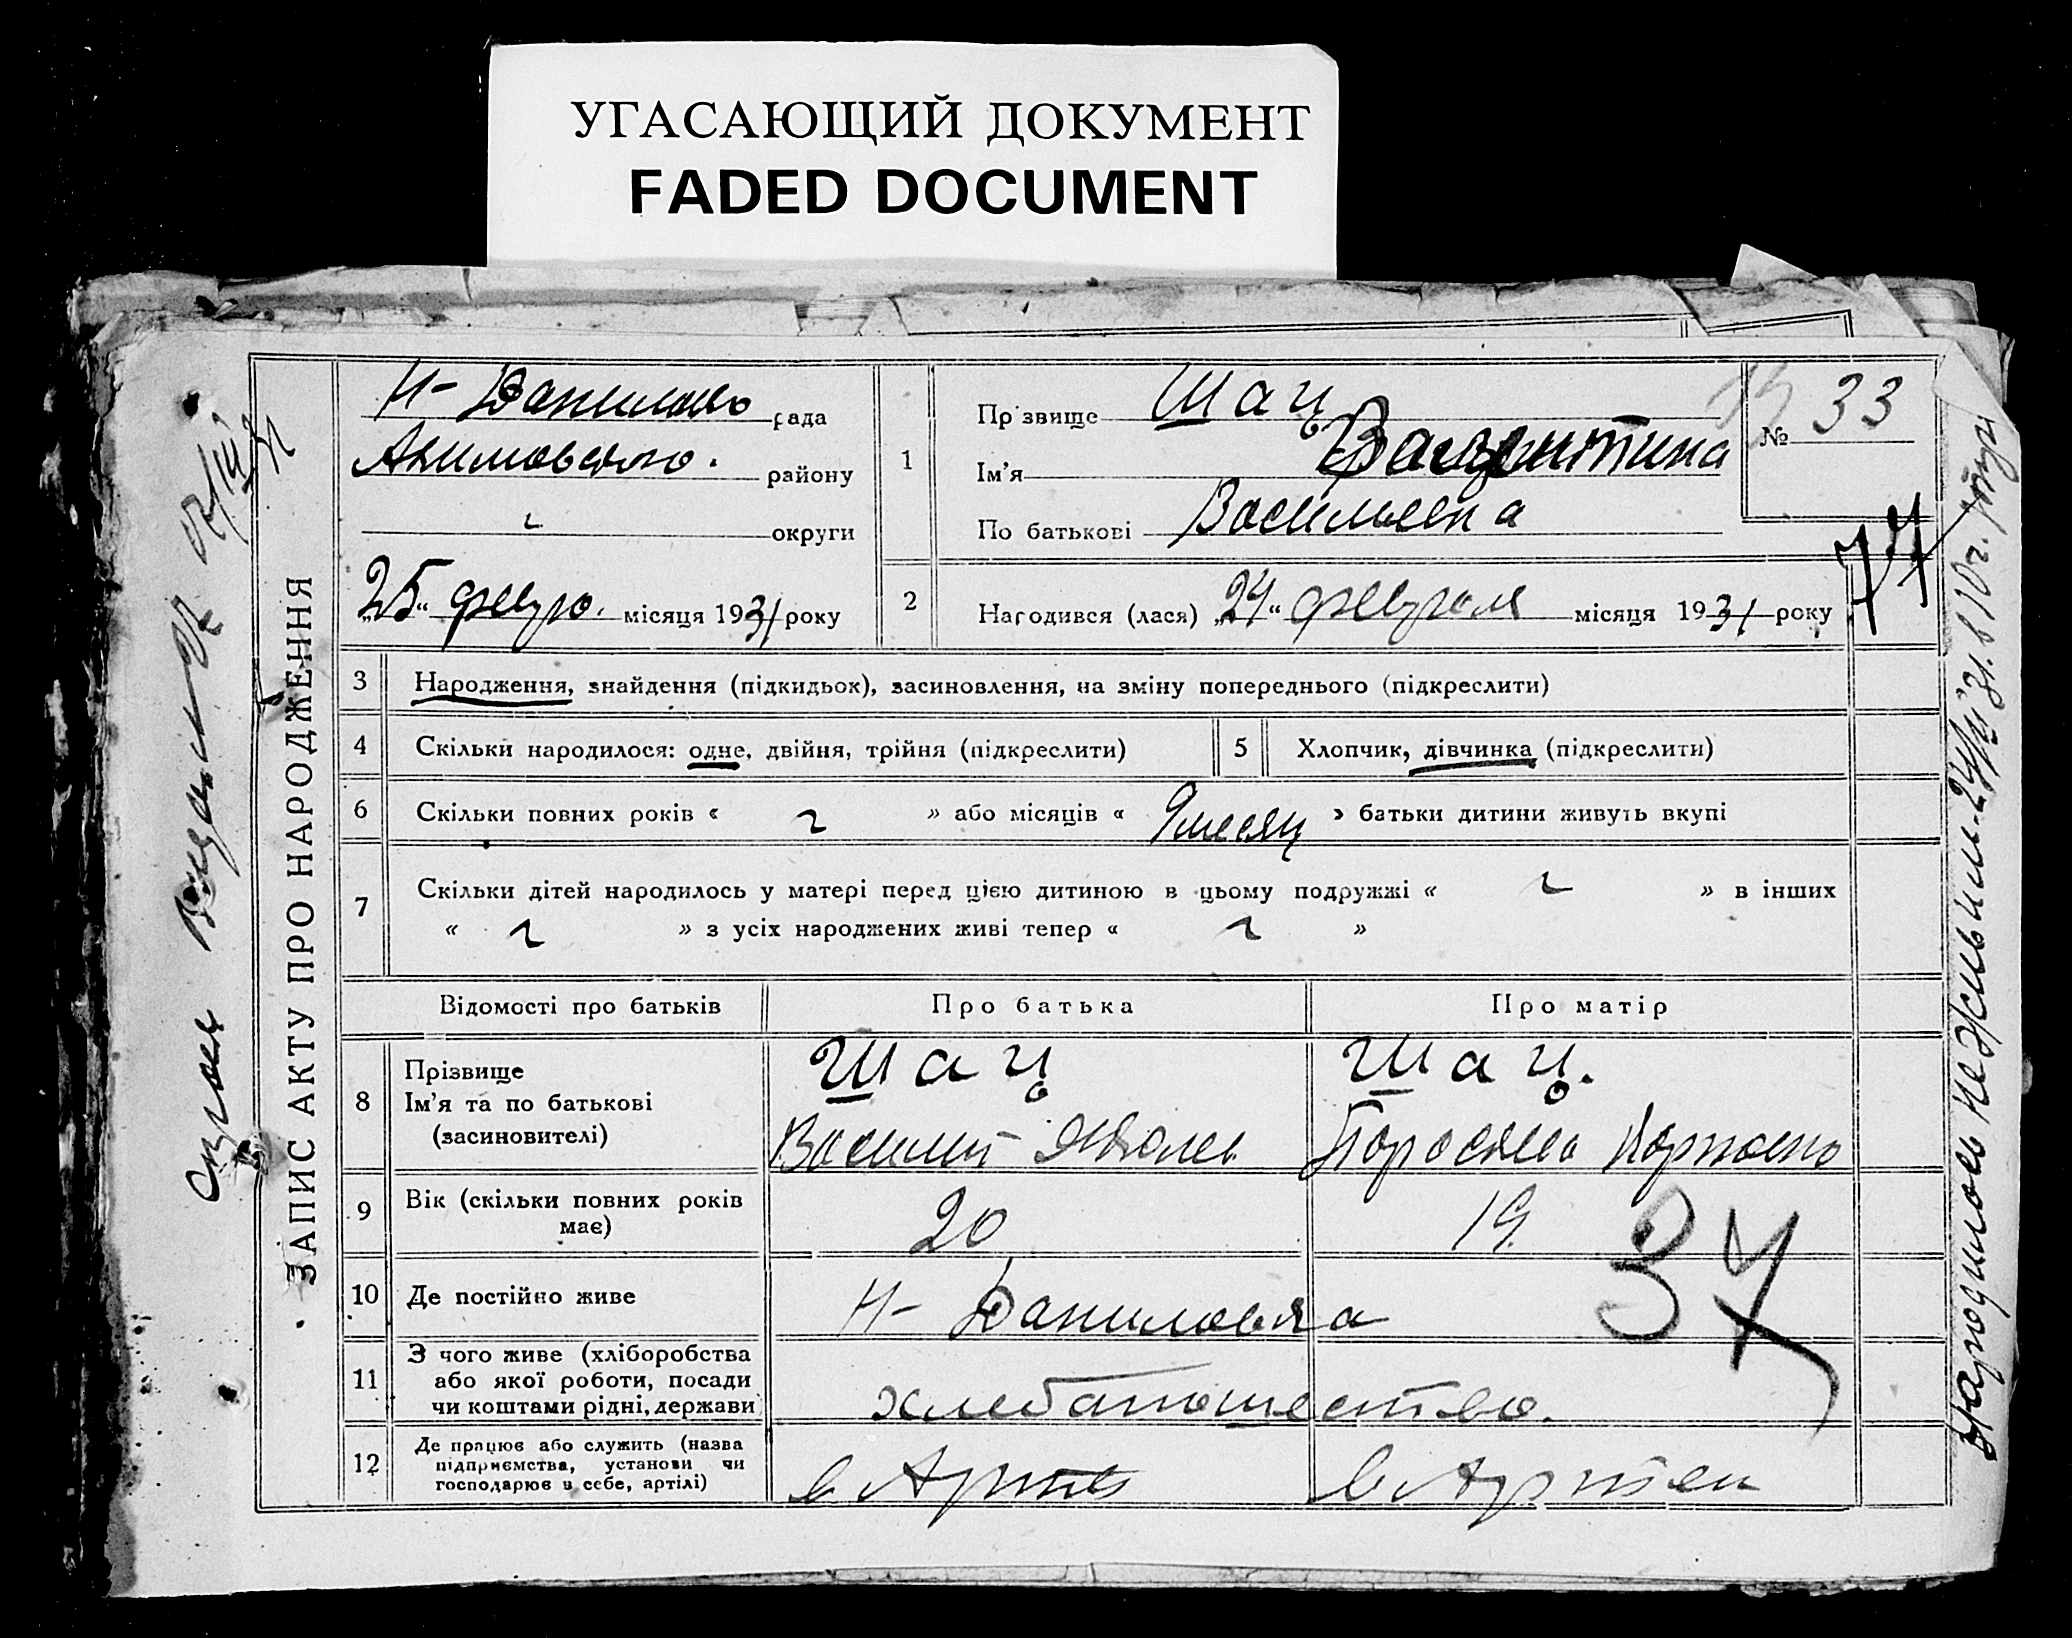 УГАСАЮЩИЙ ДОКУМЕНТ
FADED DOCUMENT
ЗАПИС АКТУ ПРО НАРОДЖЕННЯ
Н-Данилов рада
Акимовского. району
округи
„25“ февр. місяця 1931 року
1
Прізвище Шац
Ім'я Валентина
По батькові Васильевна
№ 33
2
Народився (лася) „24“ февраля місяця 1931 року
74
3 Народження, знайдення (підкидьок), засиновлення, на зміну попереднього (підкреслити)
4 Скільки народилося: одне, двійня, трійня (підкреслити)
5 Хлопчик, дівчинка (підкреслити)
6 Скільки повних років « » або місяців « 9 месяц » батьки дитини живуть вкупі
7 Скільки дітей народилось у матері перед цією дитиною в цьому подружжі « » в інших
« » з усіх народжених живі тепер « »
Відомості про батьків Про батька Про матір
8 Прізвище
Ім'я та по батькові
(засиновителі)
Шац
Василий
Шац.
9 Вік (скільки повних років
має)
20 19
37
10 Де постійно живе Н-Даниловка
11 З чого живе (хліборобства
або якої роботи, посади
чи коштами рідні, держави
хлебопашество.
12 Де працює або служить (назва
підприємства, установи чи
господарює в себе, артілі)
в Артел в Артели